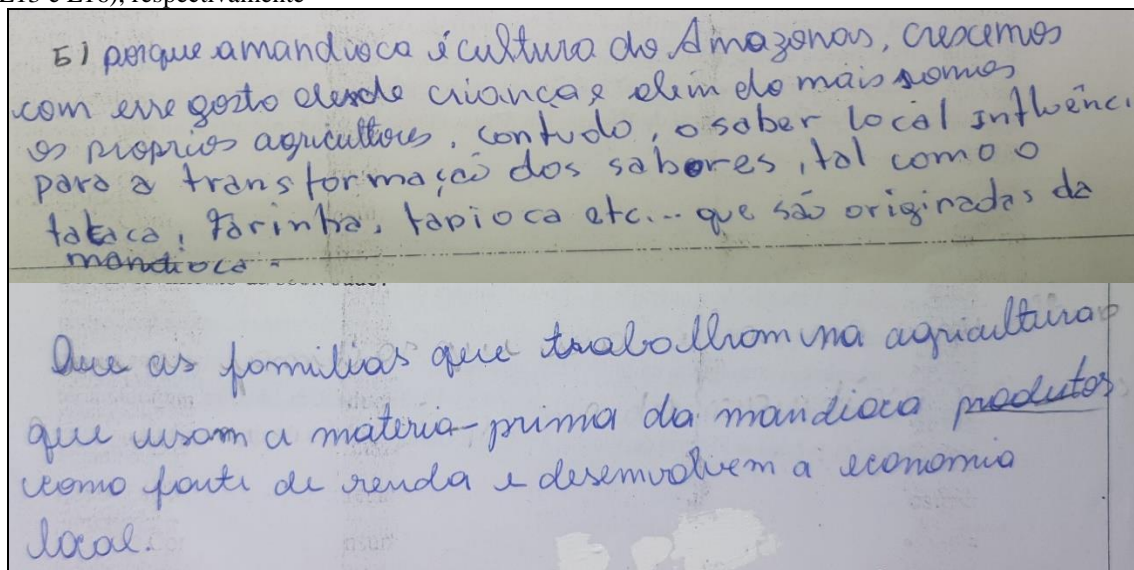 E15 e E16), respectivamente
5) porque a mandioca é cultura do Amazonas, crescemos
com esse gosto desde criança e além do mais somos
os proprios agricultores, contudo, o saber local influênci
para a transformação dos sabores, tal como o
tacaca, farinha, tapioca etc... que são originadas da
mandioca.
Que as familias que trabalham na agricultura
que usam a materia-prima da mandioca produtos
como fonte de renda e desemvolvem a economia
local.